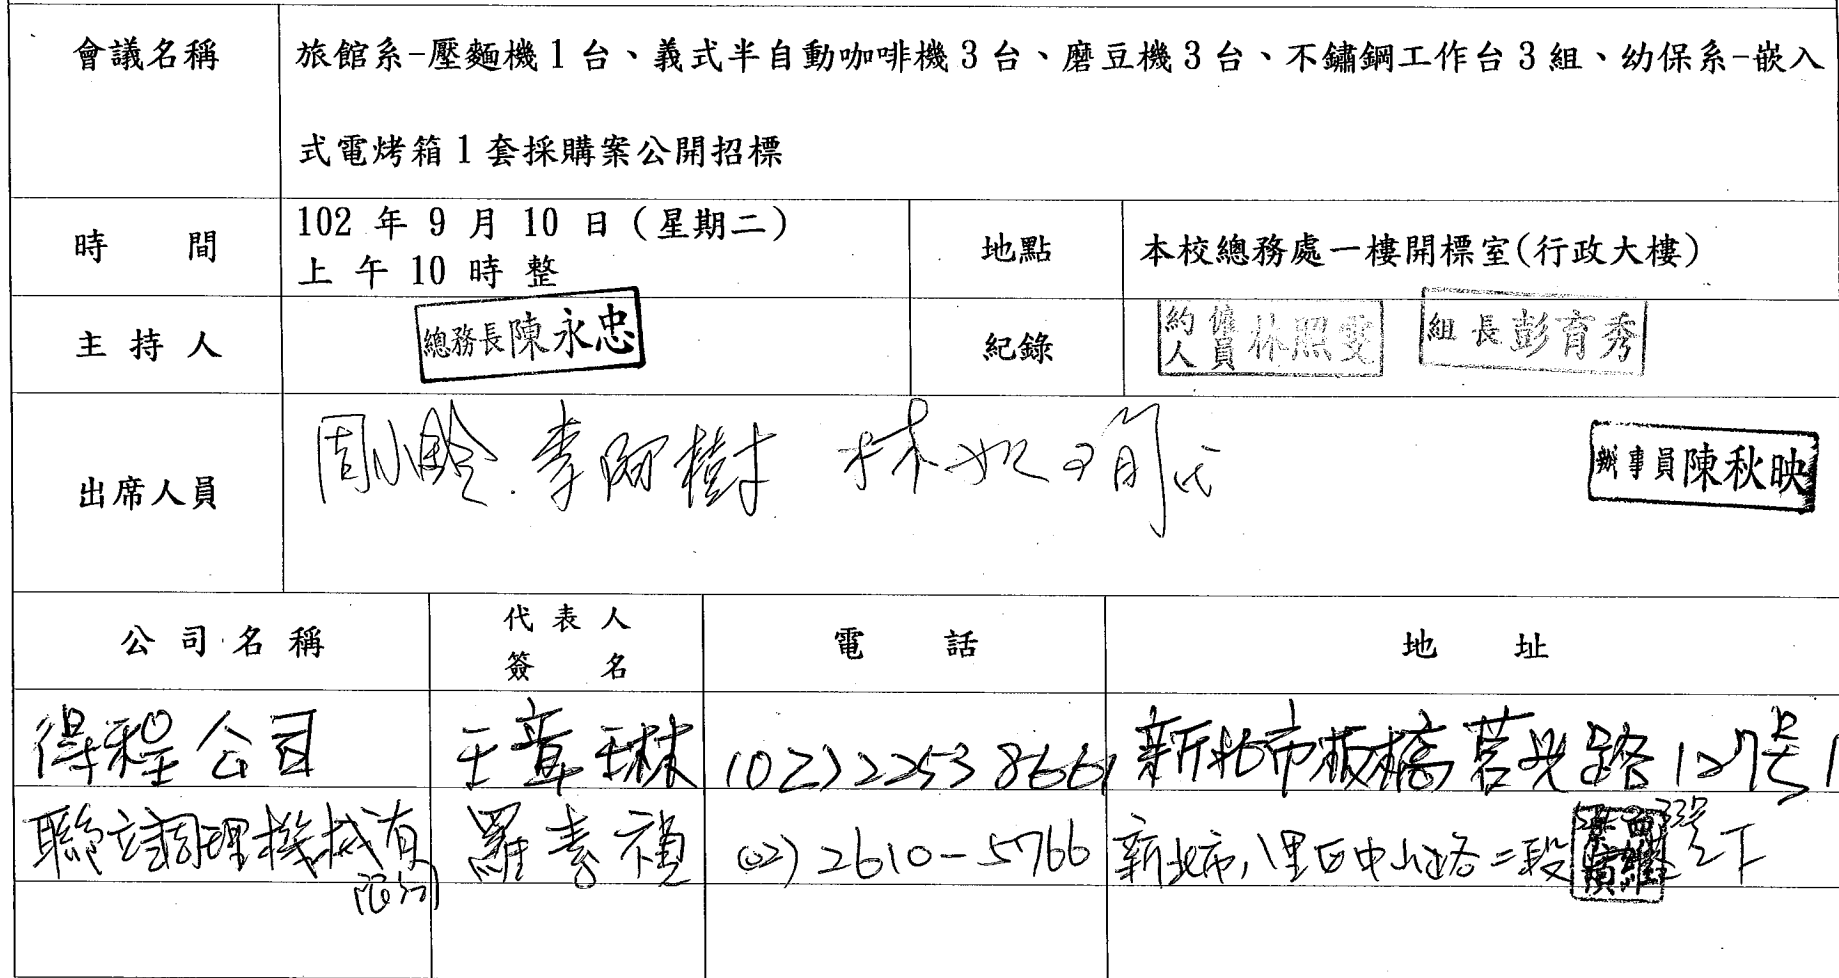 會議名稱 旅館系-壓麵機1台、義式半自動咖啡機3台、磨豆機3台、不鏽鋼工作台3組、幼保系-嵌入
式電烤箱1套採購案公開招標
時 間 102 年 9 月 10 日(星期二)
上 午 10 時 整
地點 本校總務處一樓開標室(行政大樓)
主 持 人 總務長陳永忠
紀錄 約僱人員林照雯 組長彭育秀
出席人員 周小鈴 李 樹 林 辦事員陳秋映
公 司 名 稱 代 表 人
簽 名
電 話 地 址
得程公司 王 琳 (02)22538661 新北市板橋 路127號1
聯 調理機械有
限公司
羅素禎 (02)2610-5766 新北市八里區中山路二段 33號 之下